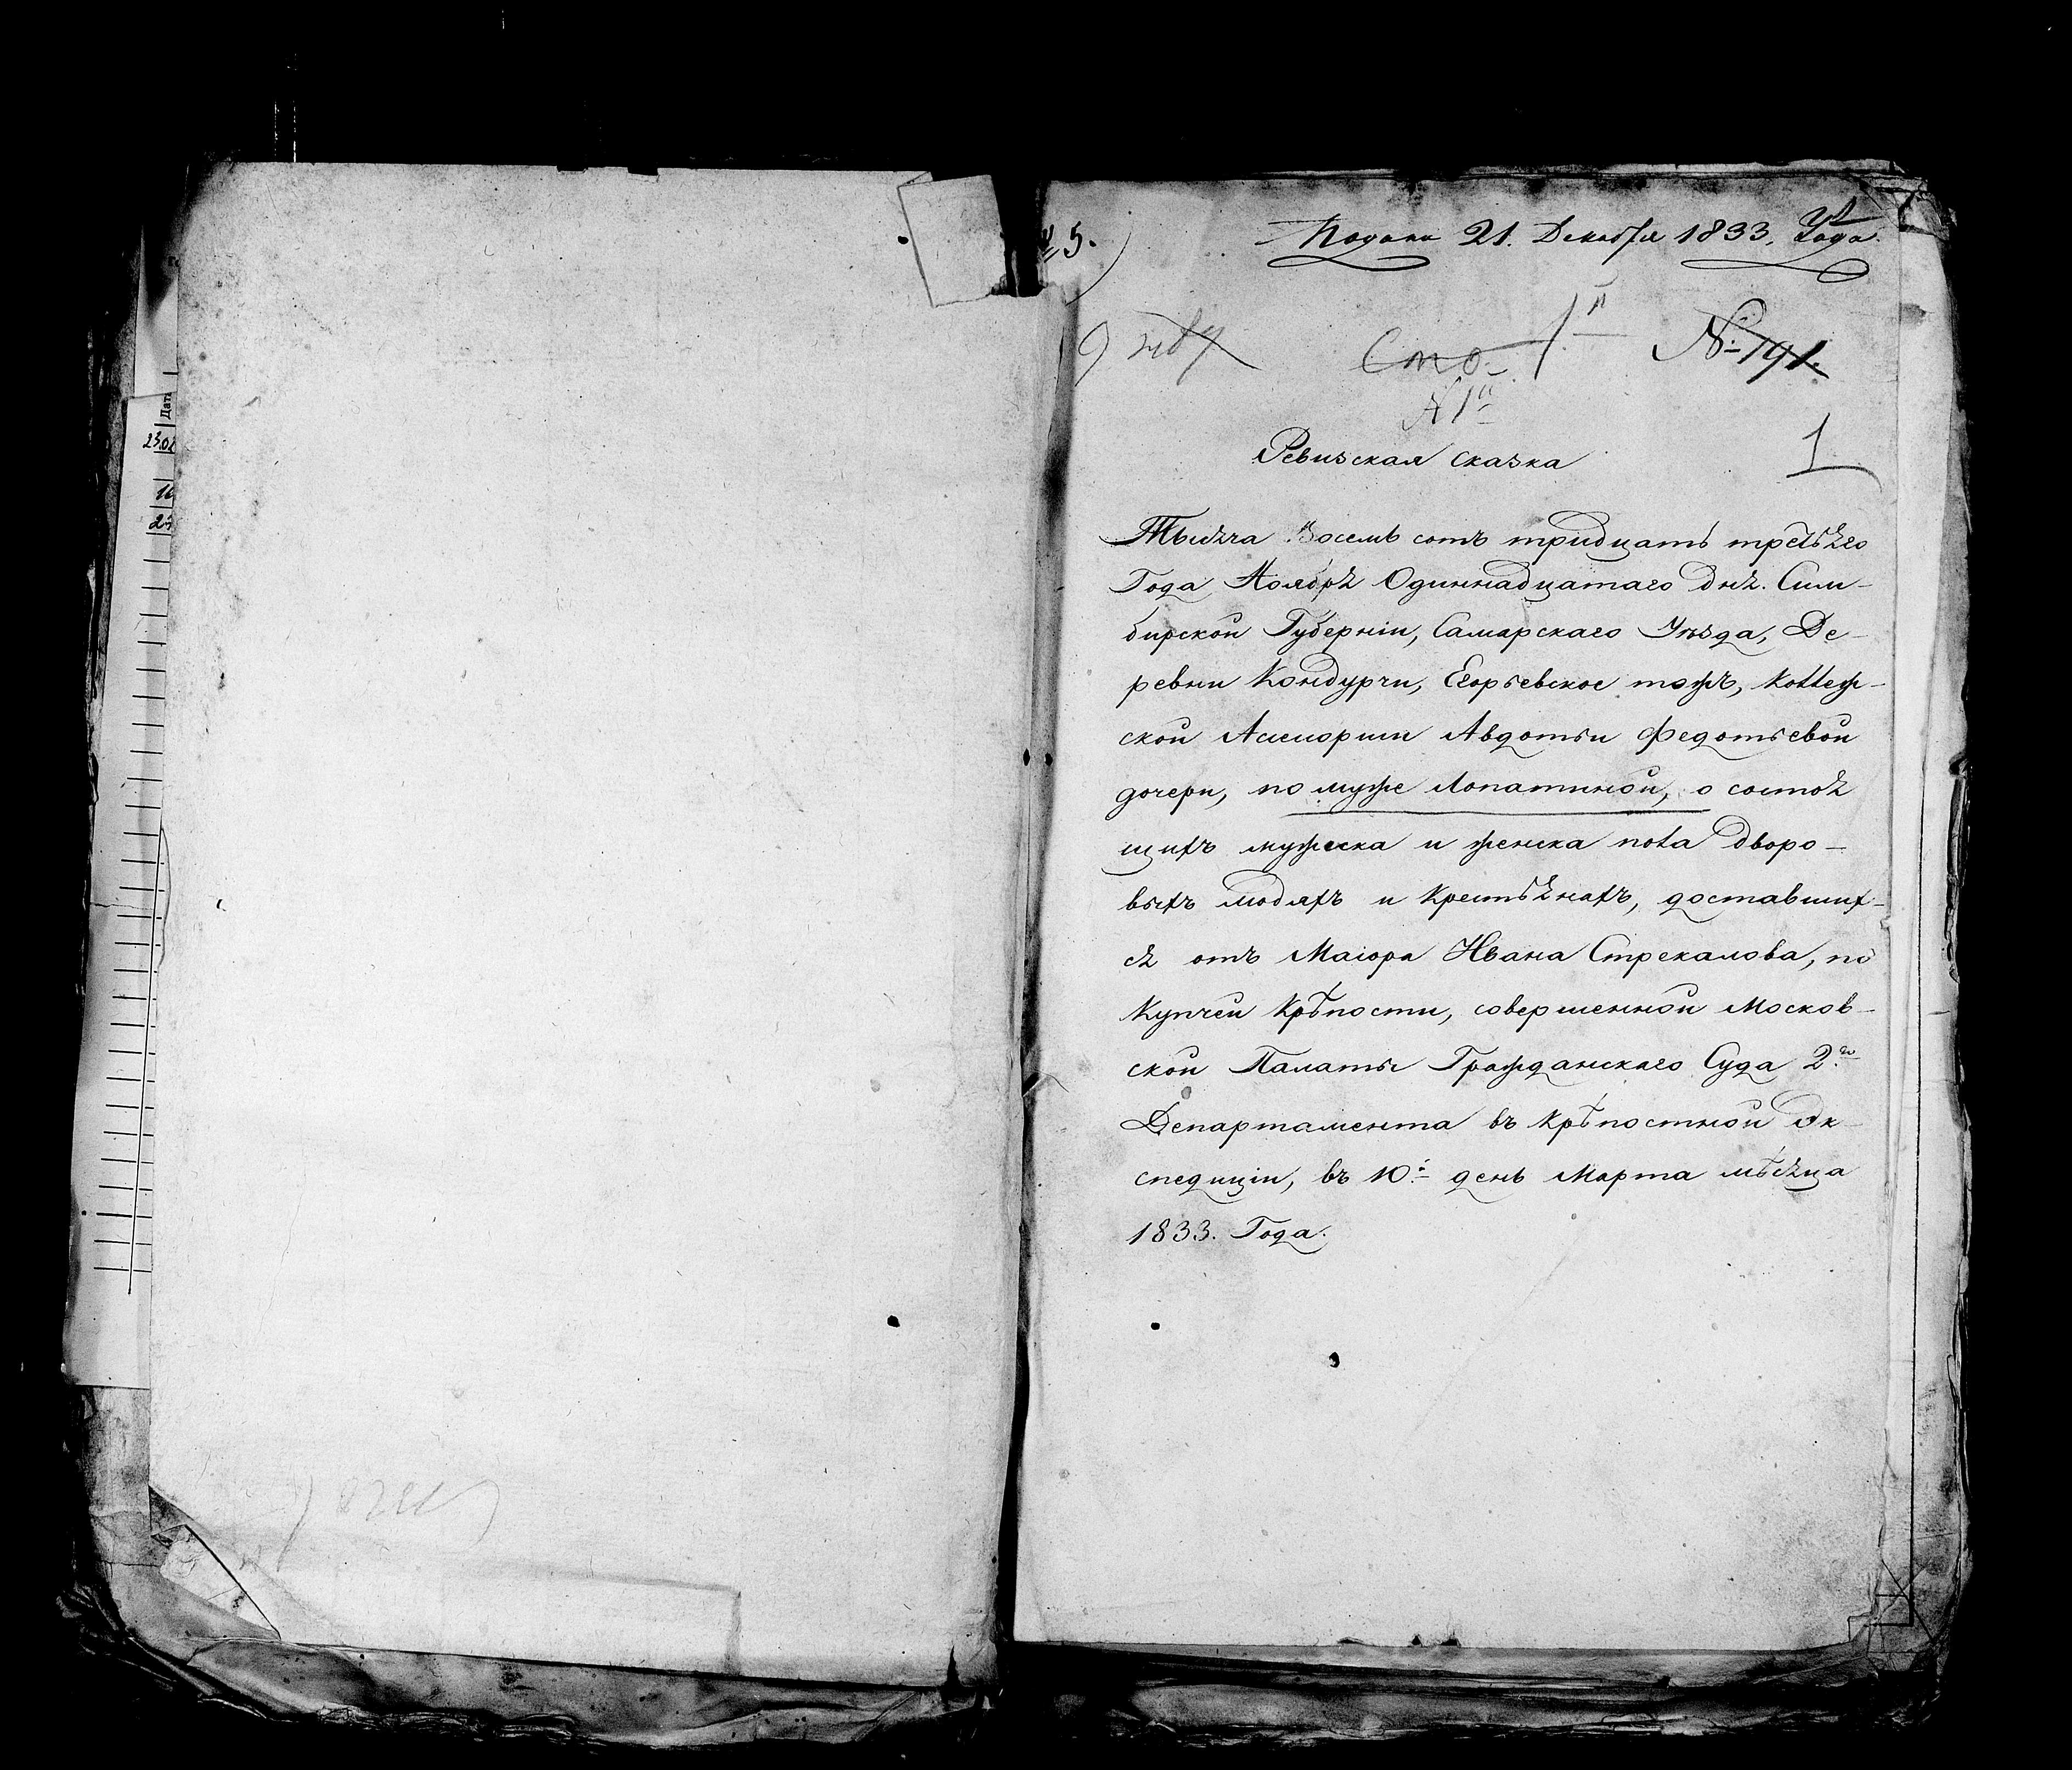 Дата
23.02
16
5.
Подана 21. Декабря 1833. Года.
Сто
1й
№ 191.
№ 1й
Ревизская сказка
1
Тысяча Восемь сотъ тридцать третьяго
Года Ноября Одиннадцатаго дня. Сим-
бирской Губерніи, Самарскаго Уѣзда, Де-
ревни Кондурчи, Егорьевское тожъ, Коллеж-
ской Ассесорши Авдотьи Федотьевой
дочери, по муже Лопатиной, о состоя
щихъ мужеска и женска пола дворо-
выхъ людяхъ и Крестьянахъ, доставших-
ся отъ Маіора Ивана Стрекалова, по
Купчей Крѣпости, совершенной Москов-
ской Палаты Гражданскаго Суда 2го
Департамента въ Крѣпостной Эк-
спедиціи, въ 10й день Марта мѣсяца
1833. Года.